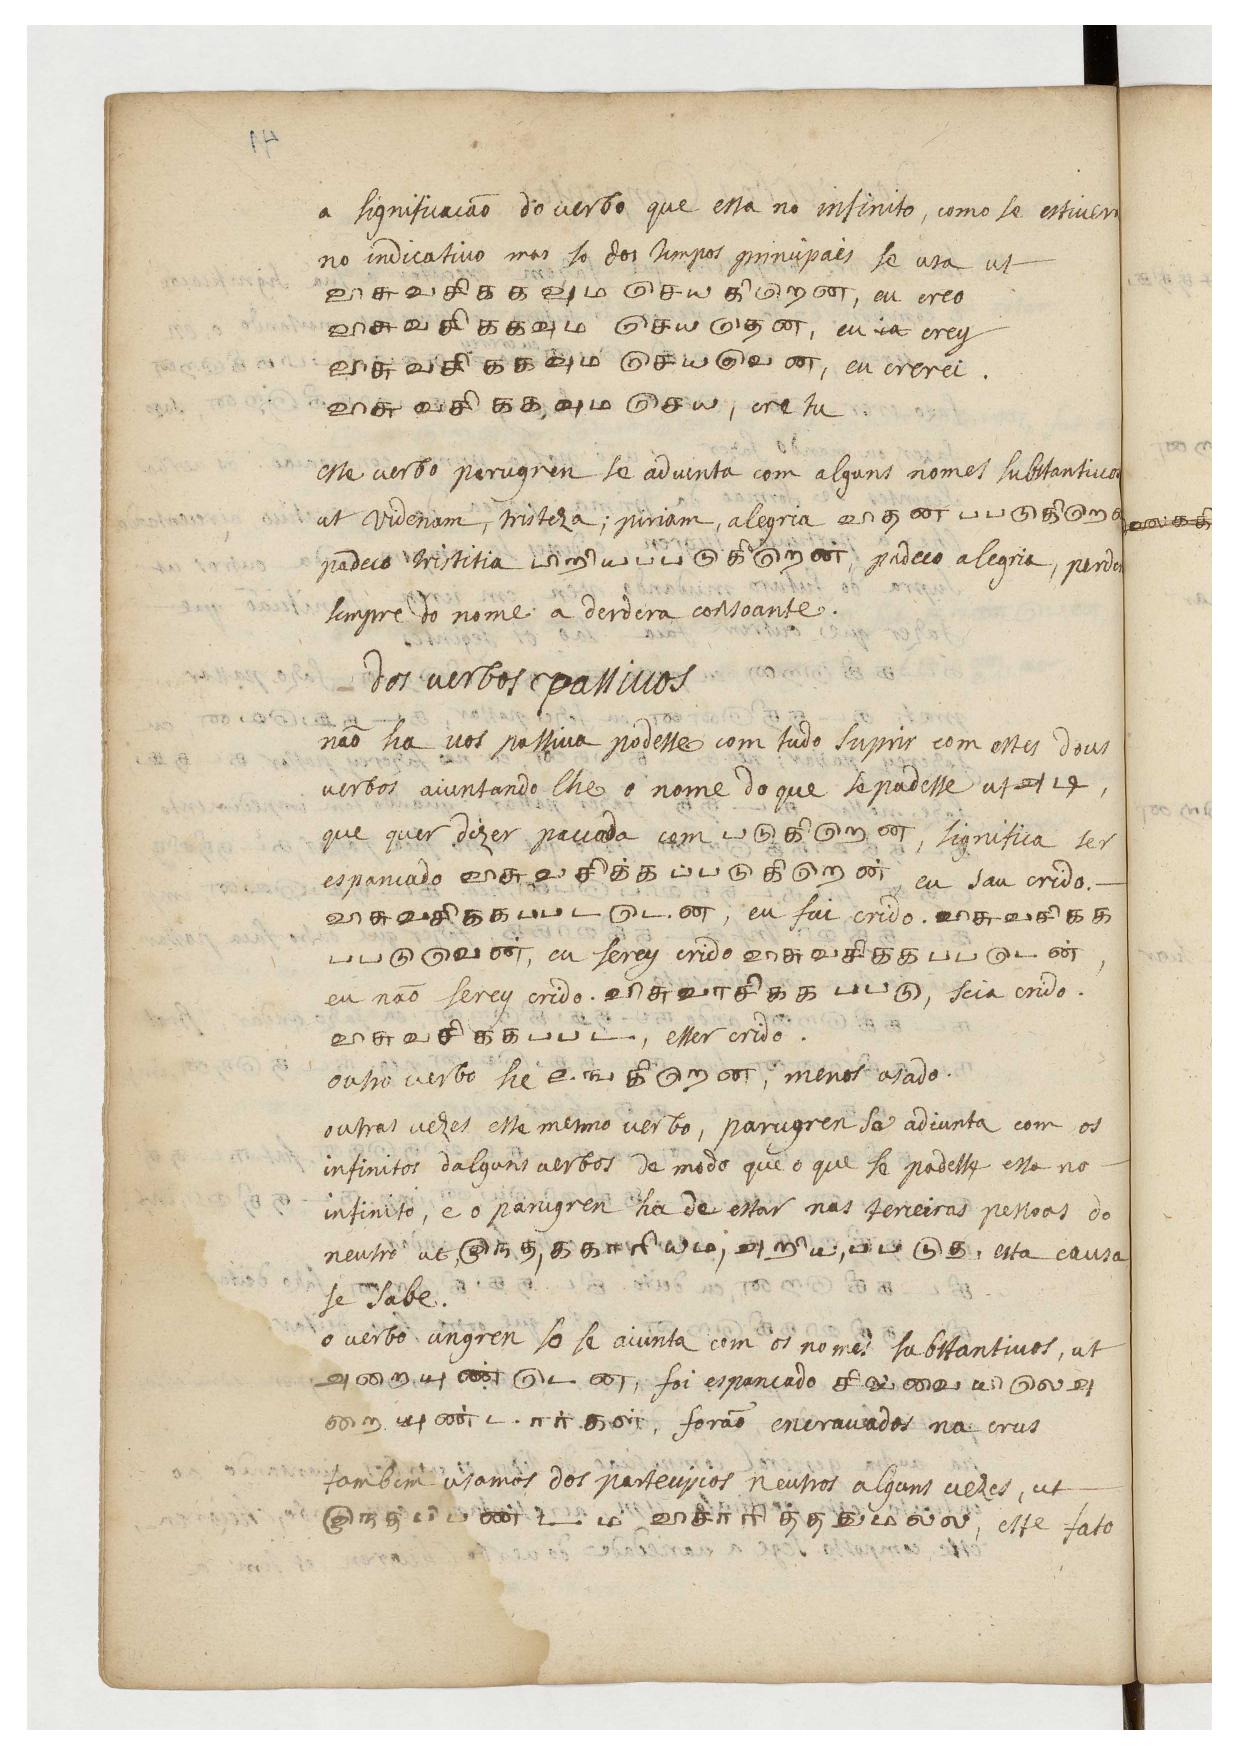 a significacão do verbo que esta no infinito, como se estivera
no indicativo mas so dos tempos principais se usa ut
விசுவசிககவும செயகிறென, eu creo
விசுவசிககவும செயதென, eu crey
விசுவசிககவும செயவென, eu crerei.
விசுவசிககவும செய, cre tu
este verbo perugren se adiunta com alguns nomes substantivos
ut Videnam, tristeza; piriam, alegria வெதனபபடுகிறென
padeco tristitia பிறியபபடுகிறென், padeco alegria, perde
sempre do nome a derdera consoante.
dos verbos passivos
não ha vos passiva podesse com tudo suprir com estes dous
verbos aiuntando lhe o nome do que se padesse ut அடி,
que quer dizer paccada com படுகிறென, significa ser
espancado விசுவசிக்கப்படுகிறென் eu sau crido.
விசுவசிககபபடடென, eu fui crido. விசுவசிகக
பபடுவென், eu serey crido விசுவசிககபபடென்,
eu não serey crido. விசுவாசிகக பபடு, seia crido.
விசுவசிககபபட, esser crido.
outro verbo he உஙகிறென, menos usado.
outras vezes este mesmo verbo, parugren se adiunta com os
infinitos dalguns verbos de modo que o que se padesse esta no
infinito, e o parugren ha de estar nas terceiras pessoas do
neutro ut, இநத, ககாரியம, அறிய, பபடுத. esta causa
se sabe.
o verbo ungren so se aiunta com os nomes substantivos, ut
அறையுண்டென, foi espancado சிலுவையிலெஅ
றையுண்டார்கள், forão encravados na crus
tambem usamos dos partecipios neutros alguns vezes, ut
இநதப்பண்டம விசாரித்ததுமல்ல, este fato